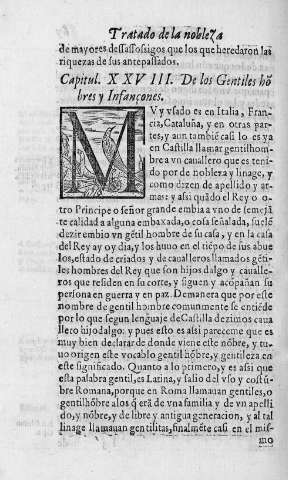 Tratado de la nobleza
de mayores dessassosigos que los que heredaron las
riquezas de sus antepassados.
Capitul. XXVIII. De los Gentiles hõ
bres y Infançones.
MVy vsado es en Italia, Fran-
cia, Cataluña, y en otras par-
tes, y aun tambiẽ casi lo es ya
en Castilla llamar gentilhom-
bre a vn cauallero que es teni-
do por de nobleza y linage, y
como dizen de apellido y ar-
mas: y assi quãdo el Rey o o-
tro Principe o señor grande embia a vno de semejã
te calidad a alguna embaxada, o cosa señalada, suelẽ
dezir embio vn gẽtil hombre de su casa, y en la casa
del Rey ay oy dia, y los huuo en el tiẽpo de sus abue
los, estado de criados y de caualleros llamados gẽti-
les hombres del Rey que son hijos dalgo y caualle-
ros que residen en su corte, y siguen y acõpañan su
persona en guerra y en paz. De manera que por este
nombre de gentil hombre comunmente se entiẽde
por lo que segun lenguaje de Castilla dezimos caua
llero hijodalgo: y pues esto es assi pareceme que es
muy bien declarar de donde viene este nõbre, y tu-
uo origen este vocablo gentil hõbre, y gentileza en
este significado. Quanto a lo primero, y es assi que
esta palabra gentil, es Latina, y salio del vso y costũ-
bre Romana, porque en Roma llamauan gentiles, o
gentilhõbre a los q̃ erã de vna familia y de vn apelli
do, y nõbre, y de libre y antigua generacion, y al tal
linage llamauan gentilitas, finalmẽte casi en el mis-
mo